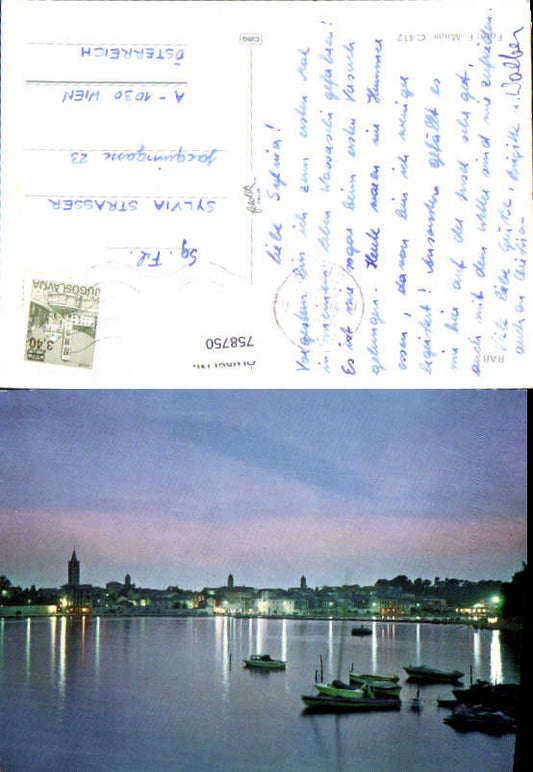 Liebe Sylvia!
Vorgestern bin ich zum ersten Mal
in meinem Leben Wasserschi gefahren!
Es ist mir sogar beim ersten Versuch
gelungen. Heute waren wir Hummer
essen, davon bin ich weniger
begeistert! Ansonsten gefällt es
mir hier auf der Insel sehr gut,
auch mit dem Wetter sind wir zufrieden.
Viele liebe Grüße, Brigitte u. Walter
auch an Christian
Sg. Frl.
SYLVIA STRASSER
Jacquingasse 23
A - 1030 WIEN
ÖSTERREICH
RAB
Foto: F. Mauri C 412
JUGOSLAVIJA
3,40
758750